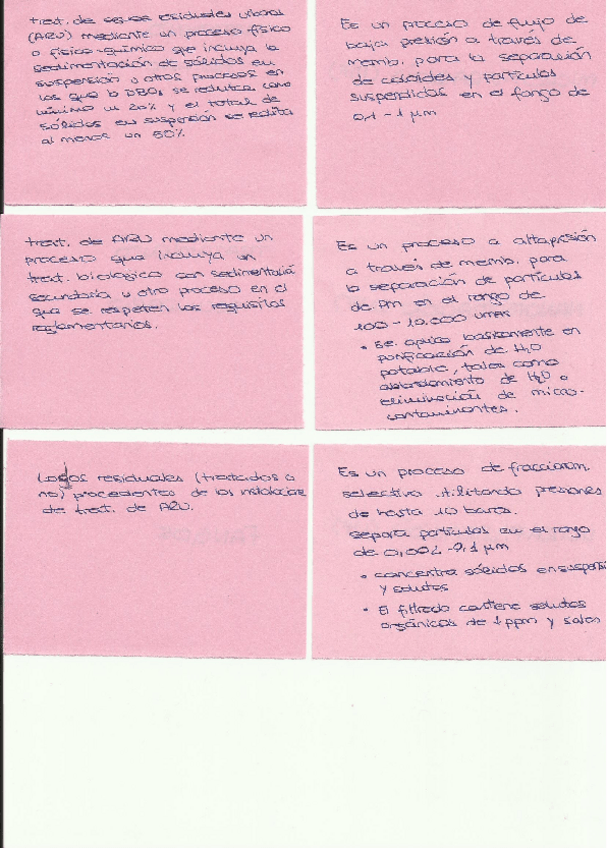 trat. de aguas residuales urbanas
(ARU) mediante un proceso físico
o físico-químico que incluya la
sedimentación de sólidos en
suspensión u otros procesos en
los que la DBO₅ se reduzca como
mínimo un 20% y el total de
sólidos en suspensión se
al menos un 50%
Es un proceso de flujo de
baja presión a través de
memb. para la separación
de coloides y partículas
suspendidas en el rango de
0,1 - 1 µm
trat. de ARU mediante un
proceso que incluya un
trat. biológico con sedimentación
secundaria u otro proceso en el
que se respeten los requisitos
reglamentarios.
Es un proceso a alta presión
a través de memb. para
la separación de partículas
de Pm en el rango de
100 - 10.000 umas
• Se aplica básicamente en
purificación de H₂O
potable, tales como
ablandamiento de H₂O o
eliminación de micro-
contaminantes.
Lodos residuales (tratados o
no) procedentes de las instalaciones
de trat. de ARU.
Es un proceso de fraccionam.
selectivo utilizando presiones
de hasta 10 bares.
separa partículas en el rango
de 0,001 - 0,1 µm
• concentra sólidos en suspens
y solutos
• El filtrado contiene solutos
orgánicos de 1 ppm y sales